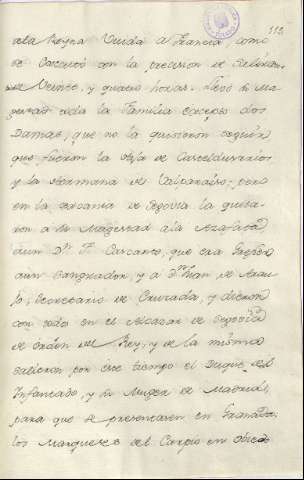 115
ala Reyna Viuda a Francia, como
se executó con la precision de
Veinte, y quatro horas. Llevó su Ma-
gestad toda la Familia excepto dos
Damas, que no la quisieron seguir
que fueron la hija de
y la hermana de Valparaiso; pero
en la cercania de Segovia la quita-
ron a su Magestad ala Azafata,
aun Dn. F. Carcanio, que era
aun Sangrador, y a Dn. Juan de Arau-
jo, Secretario de Cruzada, y dieron
con todo en el Alcazar de Segovia
de orden del Rey, y de la misma
salieron por este tiempo el Duque del
Infantado, y su Muger de Madrid,
para que se presentasen en Granada.
los Marqueses del Carpio en